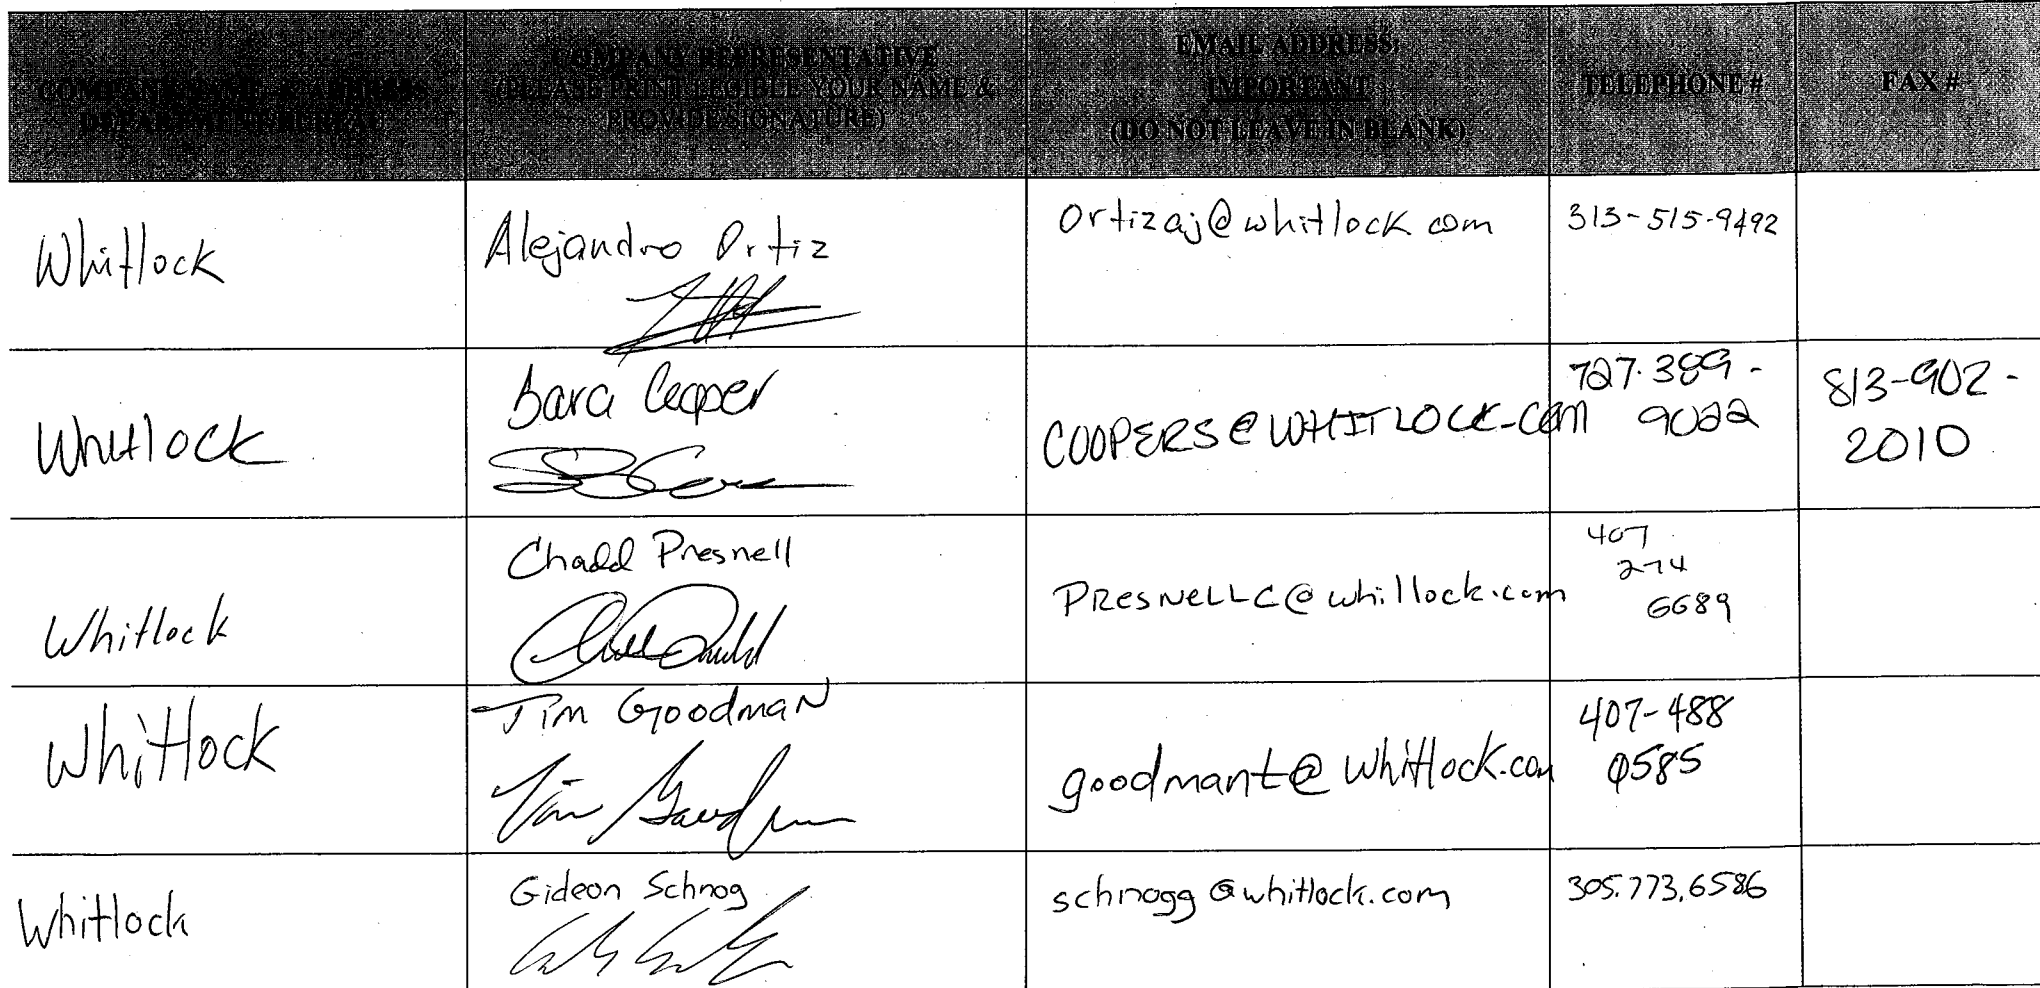 COMPANY NAME & ADDRESS
DEPARTMENT/BUREAU
COMPANY REPRESENTATIVE
(PLEASE PRINT LEGIBLE YOUR NAME &
PROVIDE SIGNATURE)
EMAIL ADDRESS:
IMPORTANT
(DO NOT LEAVE IN BLANK)
TELEPHONE #
FAX #
Whitlock
Alejandro Ortiz
Ortizaj@whitlock.com
313-515-9492
Whitlock
Sara Cooper
COOPERS@WHITLOCK.COM
727.389-
9022
813-902-
2010
Whitlock
Chadd Presnell
PResNeLLC@whitlock.com
407
274
6689
Whitlock
Tim GoodmaN
Tim Goodman
goodmant@Whitlock.com
407-488
0585
Whitlock
Gideon Schnog
schnogg@whitlock.com
305.773.6586